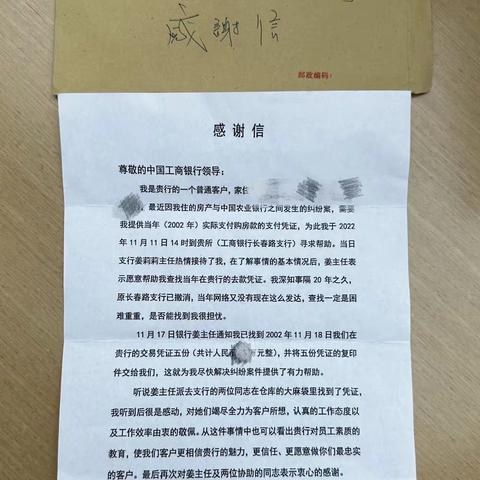 感谢信
邮政编码：
感谢信
尊敬的中国工商银行领导：
我是贵行的一个普通客户，家住
，最近因我住的房产与中国农业银行之间发生的纠纷案，需要
我提供当年（2002 年）实际支付购房款的支付凭证，为此我于 2022
年 11 月 11 日 14 时到贵所（工商银行长春路支行）寻求帮助。当日
支行姜莉莉主任热情接待了我，在了解事情的基本情况后，姜主任表
示愿意帮助我查找当年在贵行的去款凭证。我深知事隔 20 年之久，
原长春路支行已撤消，当年网络又没有现在这么发达，查找一定是困
难重重，是否能找到我很担忧。
11 月 17 日银行姜主任通知我已找到 2002 年 11 月 18 日我们在
贵行的交易凭证五份（共计人民币 万元整），并将五份凭证的复印
件交给我们，这就为我尽快解决纠纷案件提供了有力帮助。
听说姜主任派去支行的两位同志在仓库的大麻袋里找到了凭证，
我听到后很是感动，对她们竭尽全力为客户所想，认真的工作态度以
及工作效率由衷的敬佩。从这件事情中也可以看出贵行对员工素质的
教育，使我们客户更相信贵行的魅力，更信任、更愿意做你们最忠实
的客户。最后再次对姜主任及两位协助的同志表示衷心的感谢。